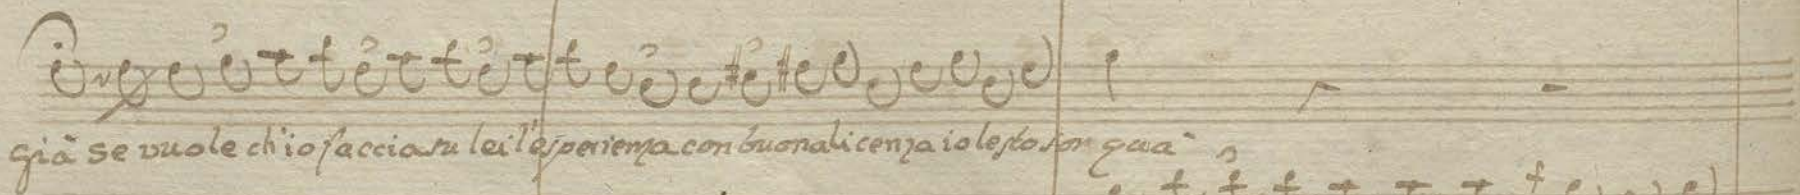 già se vuole ch'io faccia su lei l'esperienza con buona licenza io lesto son quà